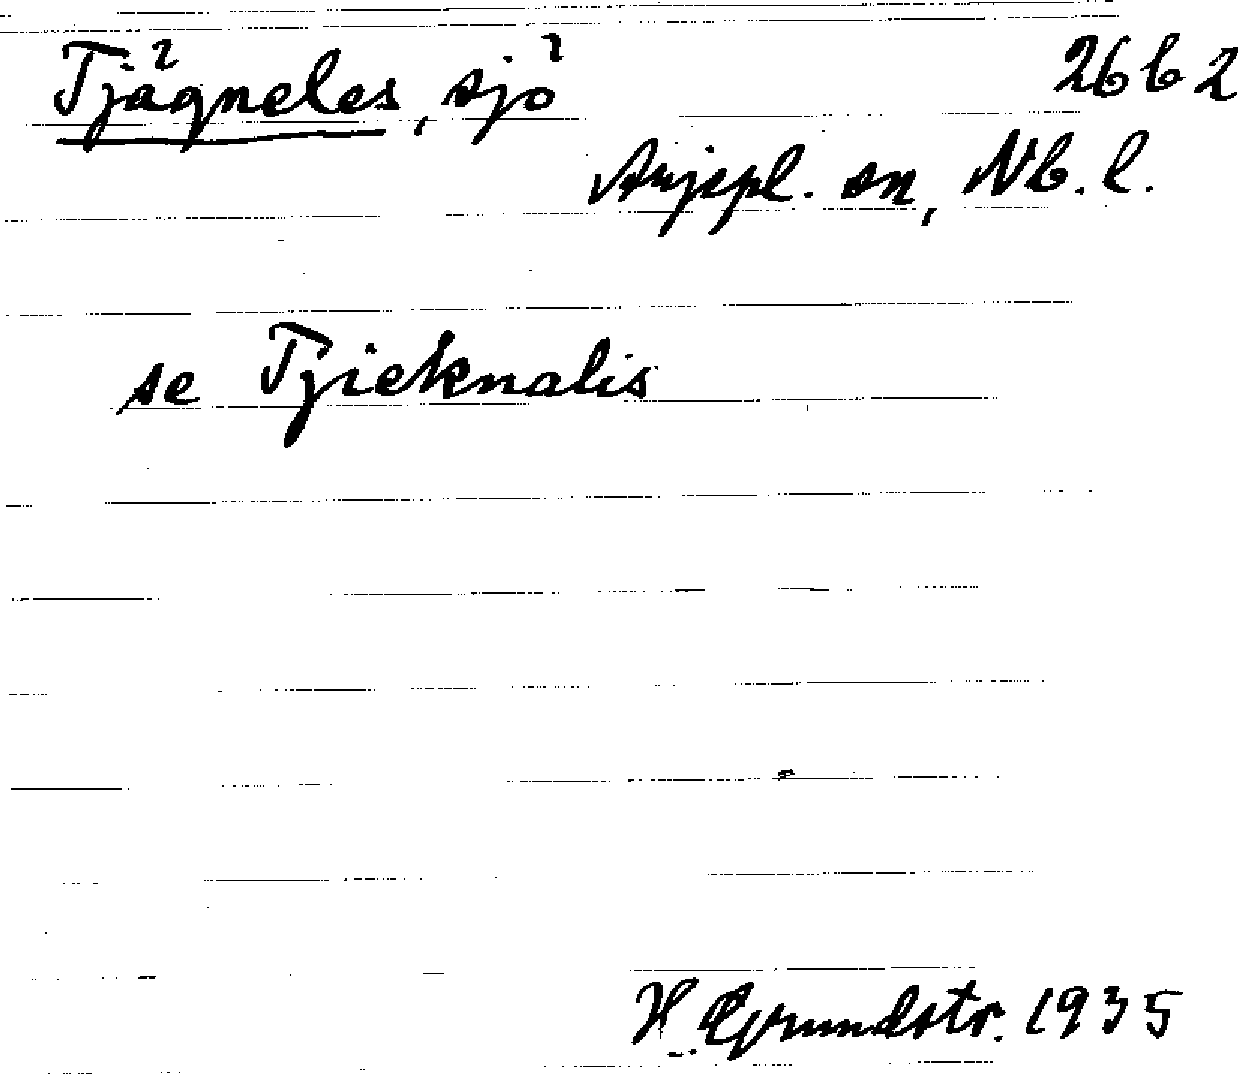 Tjägneles, sjö 26 b 2
Arjepl. sn, Nb. l.
se Tjieknalis
H. Grundstr. 1935